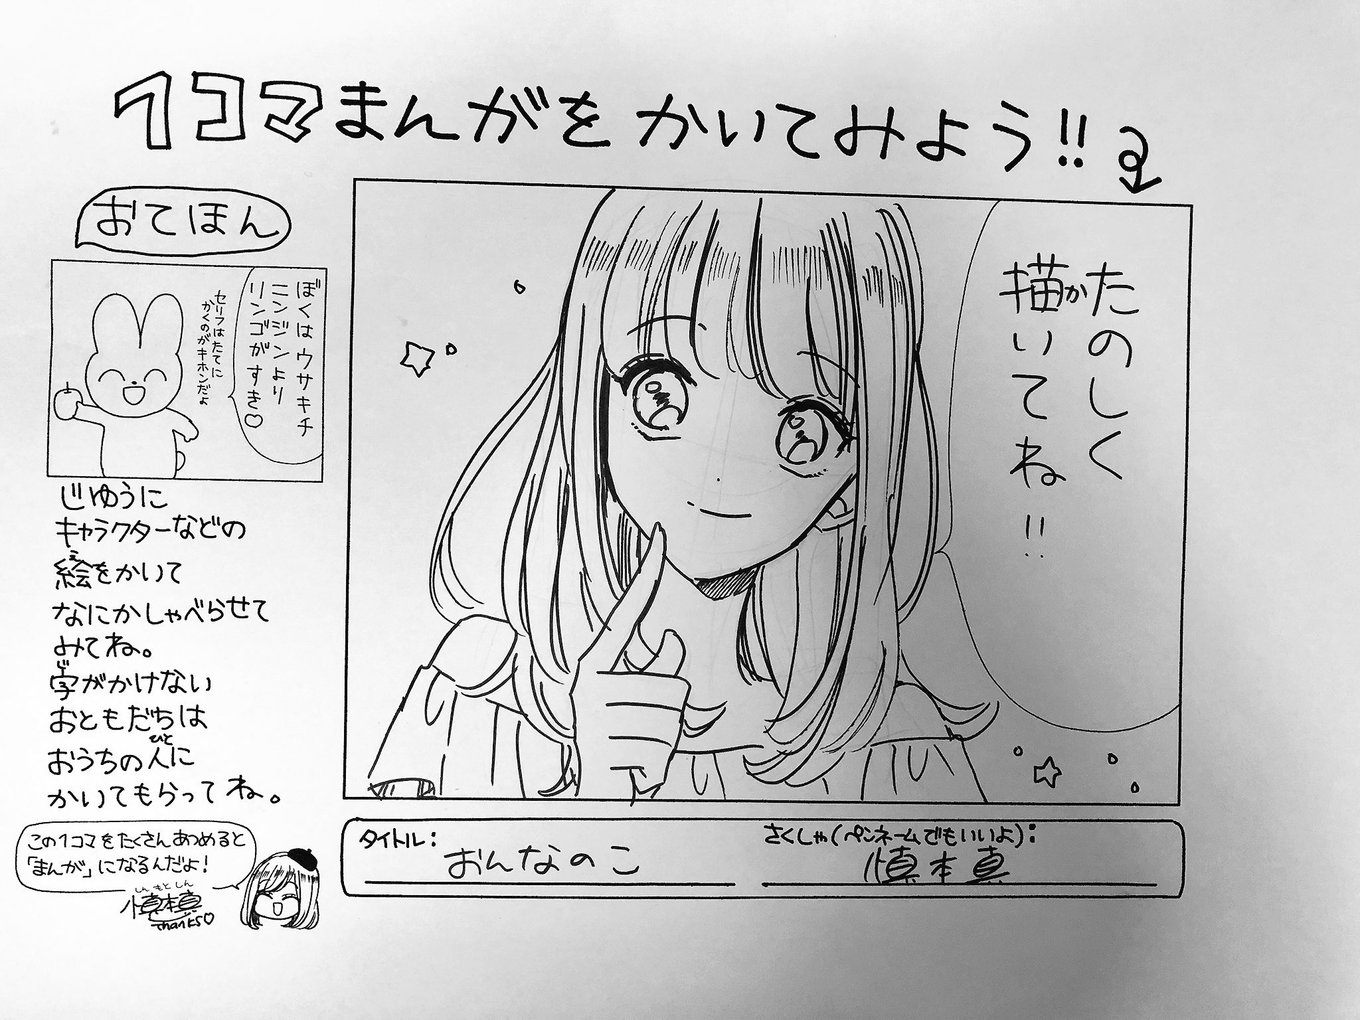 1コマまんがをかいてみよう!!
おてほん
ぼくはウサキチ
ニンジンより
リンゴがすき♡
セリフはたてに
かくのがキホンだよ
じゆうに
キャラクターなどの
絵をかいて
え
なにかしゃべらせて
みてね。
字がかけない
じ
おともだちは
おうちの人に
ひと
かいてもらってね。
この1コマをたくさんあつめると
「まんが」になるんだよ!
しんもとしん
慎本真
thanks♡
たのしく
描いてね!!
か
タイトル:
おんなのこ
さくしゃ(ペンネームでもいいよ):
慎本真